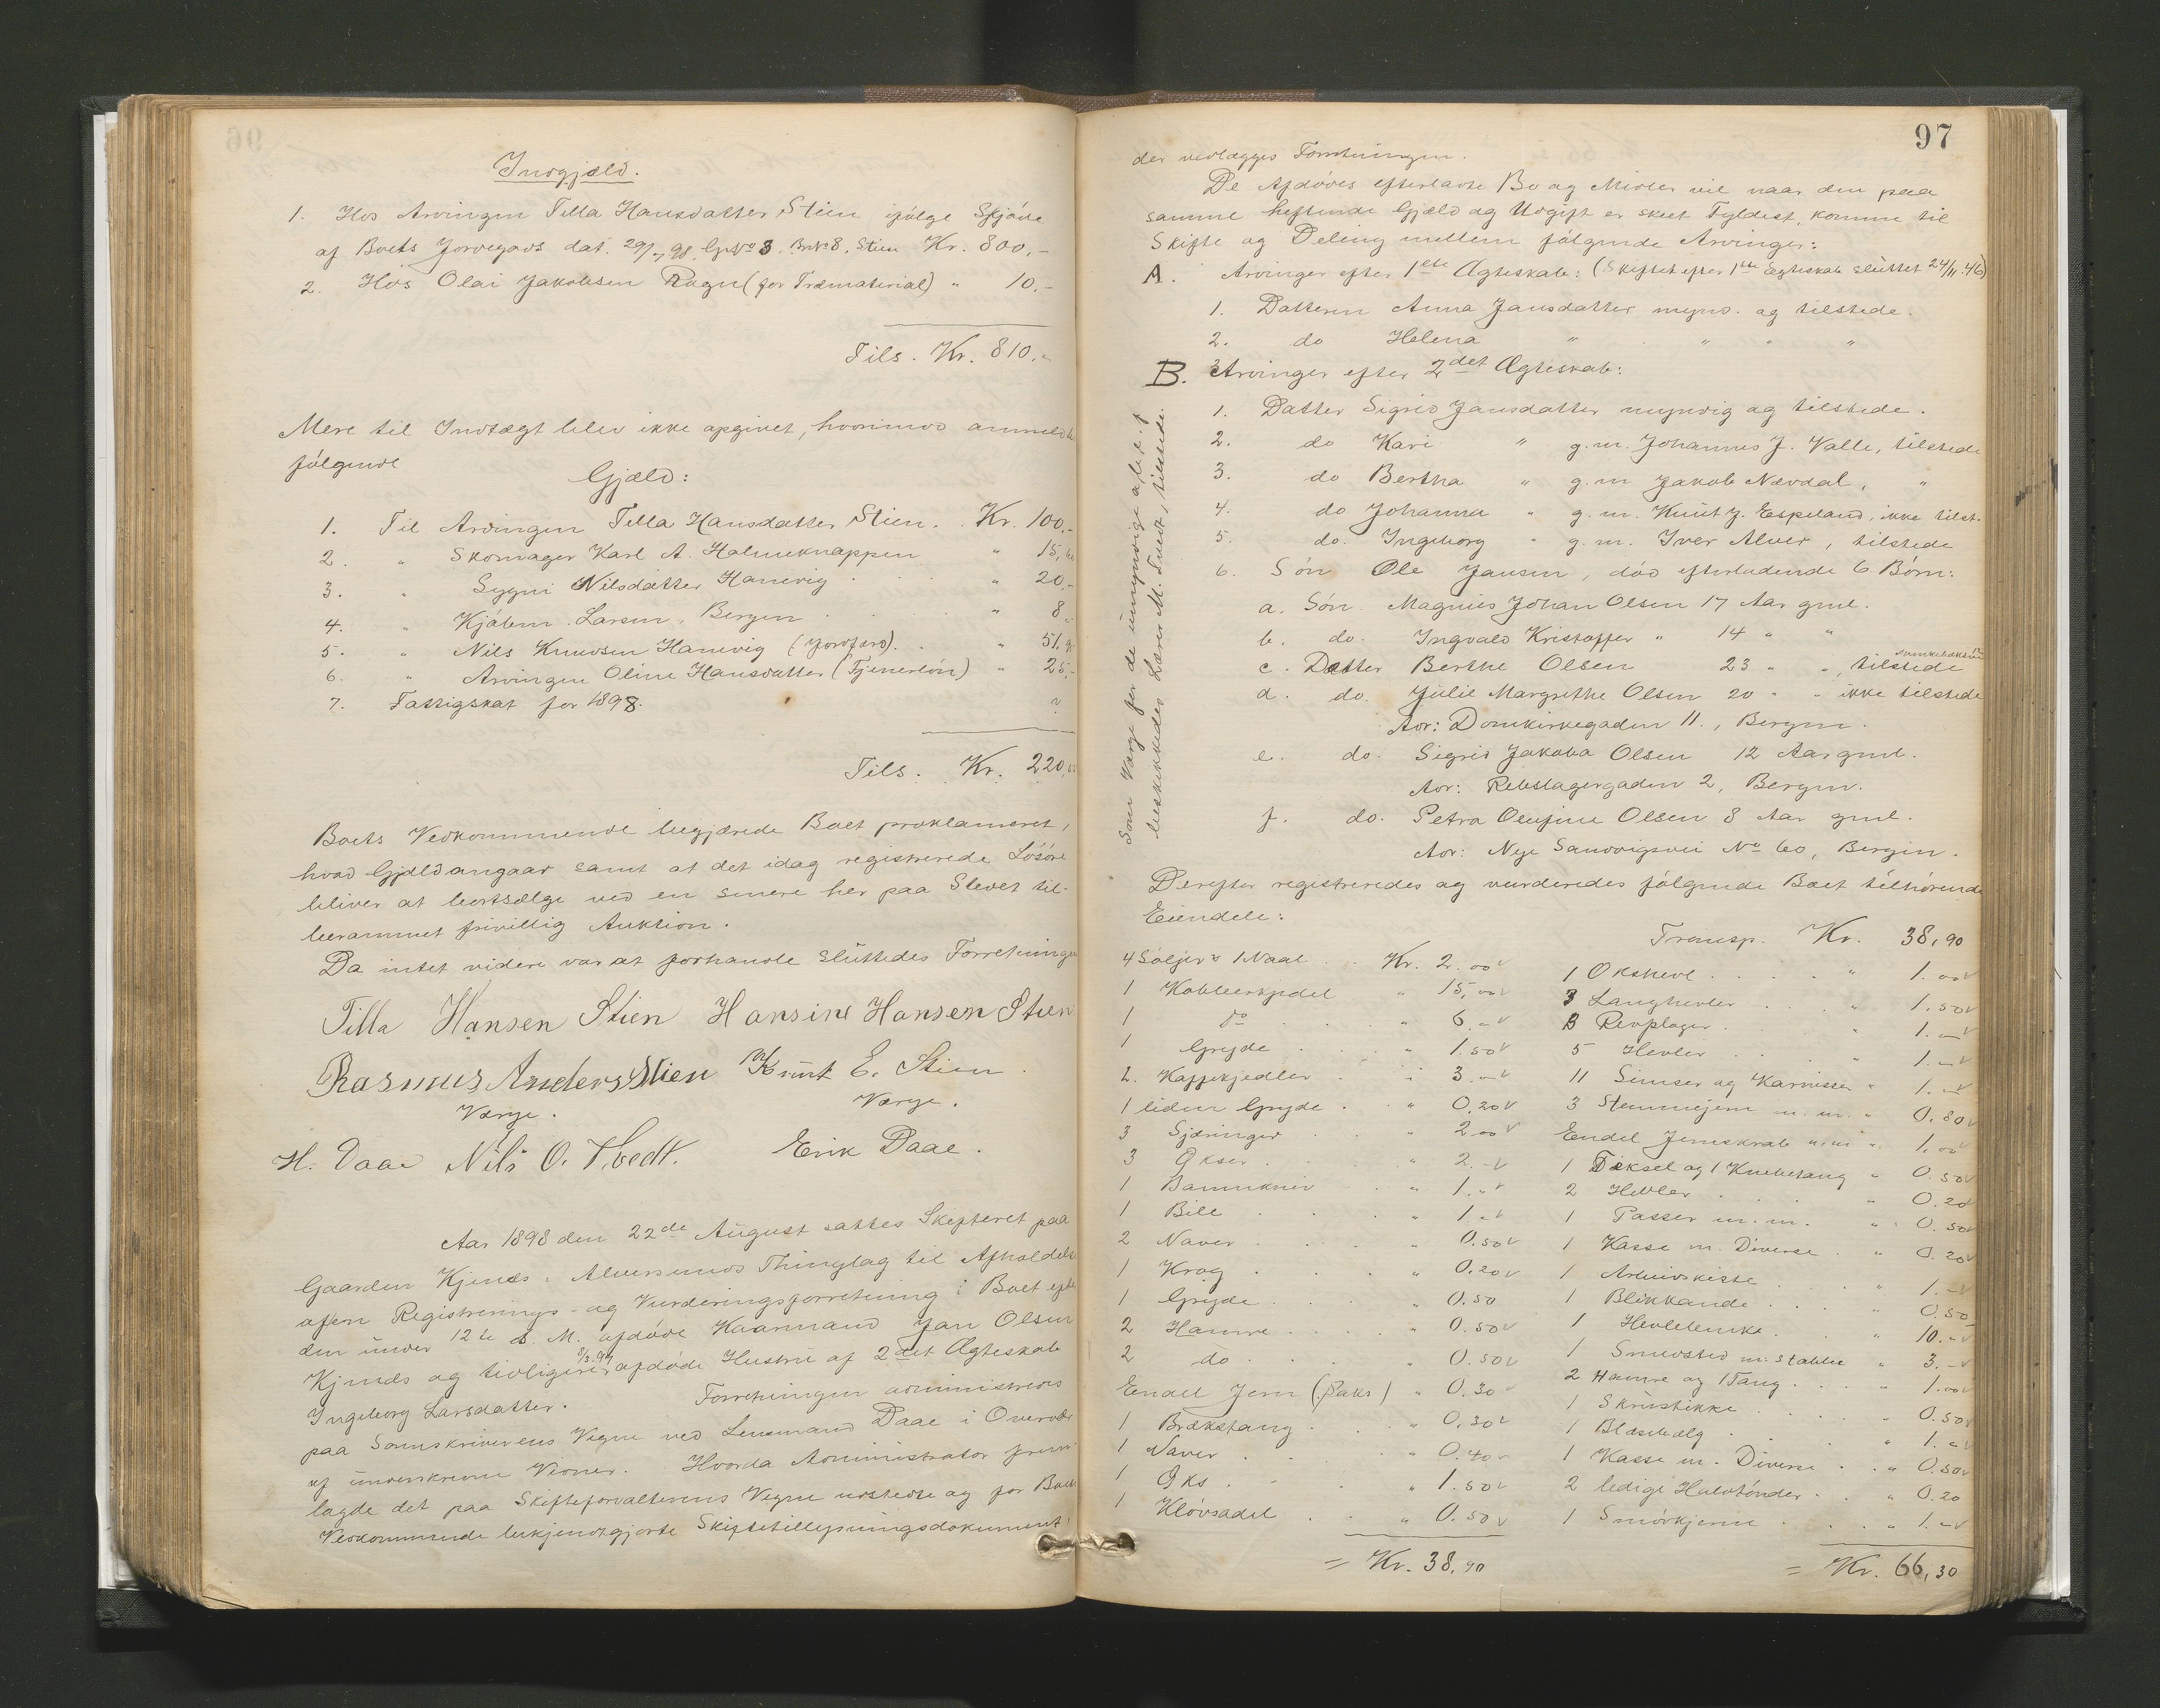 Indgjæld.
1. Hos Arvingen Tilla Hansdatter Stien ifølge Skjøde
af Boets Jordegods dat. 29/7 98. Gr.No 3. Br.No 8. Stien Kr. 800,-
2. Hos Olai Jakobsen Ragn (for Træmaterial) " 10.-
Tils. Kr. 810.-
Mere til Indtægt blev ikke opgivet, hvorimod anmeldtes
følgende
Gjæld:
1. Til Arvingen Tilla Hansdatter Stien. . Kr. 100.-
2. " Skomager Karl A. Holmeknappen " 15,
3. " Sygni Nilsdatter Hanevig . . . " 20.-
4. " Kjøbm. Larsen, Bergen . . " 8.
5. " Nils Knudsen Hanevig (Jordfærd). . " 51,
6. " Arvingen Oline Hansdatter (Tjenerløn) " 25,-
7. Fattigskat for 1898. ?
Tils. Kr. 220,
Boets Vedkommende begjærede Boet proklameret,
hvad Gjæld angaar samt at det idag registrerede Løsøre
bliver at bortsælge ved en senere her paa Stedet til-
berammet frivillig Auktion.
Da intet videre var at forhandle sluttedes Forretningen
Tilla Hansen Stien Hansine Hansen Stien
Rasmus Anders Stien Knut E. Stien
Værge. Værge.
H. Daae Nils O. Tvedt. Erik Daae.
Aar 1898 den 22de August sattes Skifteret paa
Gaarden Kjenes i Alversunds Thinglag til Afholdelse
af en Registrerings- og Vurderingsforretning i Boet efter
den under 12te d. M. afdøde Kaarmand Jan Olsen
Kjenes og tidligere, 8/3.94 afdøde Hustru af 2det Ægteskab
Ingeborg Larsdatter. Forretningen administreres
paa Sorenskriverens Vegne ved Lensmand Daae i Overvær
af underskrevne Vidner. Hvorda Administrator frem-
lagde det paa Skifteforvalterens Vegne udstedte og for Boets
Vedkommende bekjendtgjorte Skiftetillysningsdokument,
97
der vedlægges Forretningen.
De Afdødes efterladte Bo og Midler vil naar den paa
samme heftende Gjæld og Udgift er skeet Fyldest, komme til
Skifte og Deling mellem følgende Arvinger:
A. Arvinger efter 1ste Ægteskab: (Skiftet efter 1ste Ægteskab sluttet 24/11.46)
1. Datteren Anna Jansdatter mynd. og tilstede.
2. do Helena " " " "
B. Arvinger efter 2det Ægteskab:
1. Datter Sigrid Jansdatter myndig og tilstede.
2. do Kari " g.m. Johannes J. Valle, tilstede
3. do Bertha " g.m Jakob Nævdal, "
4. do Johanna " g.m. Knut J. Espeland, ikke tilst.
5. do. Ingeborg " g.m. Iver Alver, tilstede
6. Søn Ole Jansen, død efterladende 6 Børn:
a. Søn Magnus Johan Olsen 17 Aar gml.
b. do. Ingvald Kristoffer " 14 " "
c. Datter Berthe Olsen 23 " ", tilstede
d. do. Julie Margrethe Olsen 20 " " ikke tilstede
Adr: Domkirkegaden 11., Bergen.
e. do. Sigrid Jakoba Olsen 12 Aar gml.
Adr: Rebslagergaden 2, Bergen.
f. do. Petra Olufine Olsen 8 Aar gml.
Adr: Nye Sandvigsvei No 60, Bergen.
Som Værge for de umyndige
beskikkedes Lærer M. Tvedt, tilstede.
Derefter registreredes og vurderedes følgende Boet tilhørende
Eiendele:
4 Søljer & 1 Naal . . Kr. 2.00
1 Kobberkjedel " 15,00
1 do . . . " 6.-
1 Gryde . . . " 1.50
2. Kaffekjedler . " 3.-
1 liden Gryde . . " 0.20
3 Sjæringer . . " 2.00
3 Øxser . . . " 2.-
1 Baandkniv . . " 1.-
1 Bile . . . " 1.-
2 Naver . . . " 0.50
1 Krog . . . " 0.20
1 Gryde . . . " 0.50
2 Hamre . . . " 0.50
2 do . . . " 0.50
Endel Jern (Saks) " 0.30
1 Brækstang . . " 0.30
1 Naver . . . " 0.40
1 Øks . . . " 1.50
1 Kløvsadel . . " 0.50
= Kr. 38,90
Transp. Kr. 38,90
1 Okshevl . . . " 1.00
3 Langhevler . . " 1.50
3 Revplager . . " 1.-
5 Hevler . . . " 1.-
11 Simser og Karnisser " 1.-
3 Stemmejern m. m. " 0.80
Endel Jernskrab m.m " 1.00
1 Dæksel og 1 Knebetang " 0.50
2 Hevler . . . " 0.20
1 Passer m. m. " 0.50
1 Kasse m. Diverse . " 0.20
1 Arbeidskiste . . " 1.-
1 Blikkande . . . " 0.50
1 Hevlebænke . . " 10.-
1 Smedsted m. Stabbe " 3.-
2 Hamre og 1 Tang . . . " 1.00
1 Skrustikke . . . " 0.50
1 Blæsebælg . . . " 1.-
1 Kasse m. Diverse . . " 0.50
2 ledige Halvtønder . . " 0.20
1 Smørkjerne . . . " 1.-
= Kr. 66,30